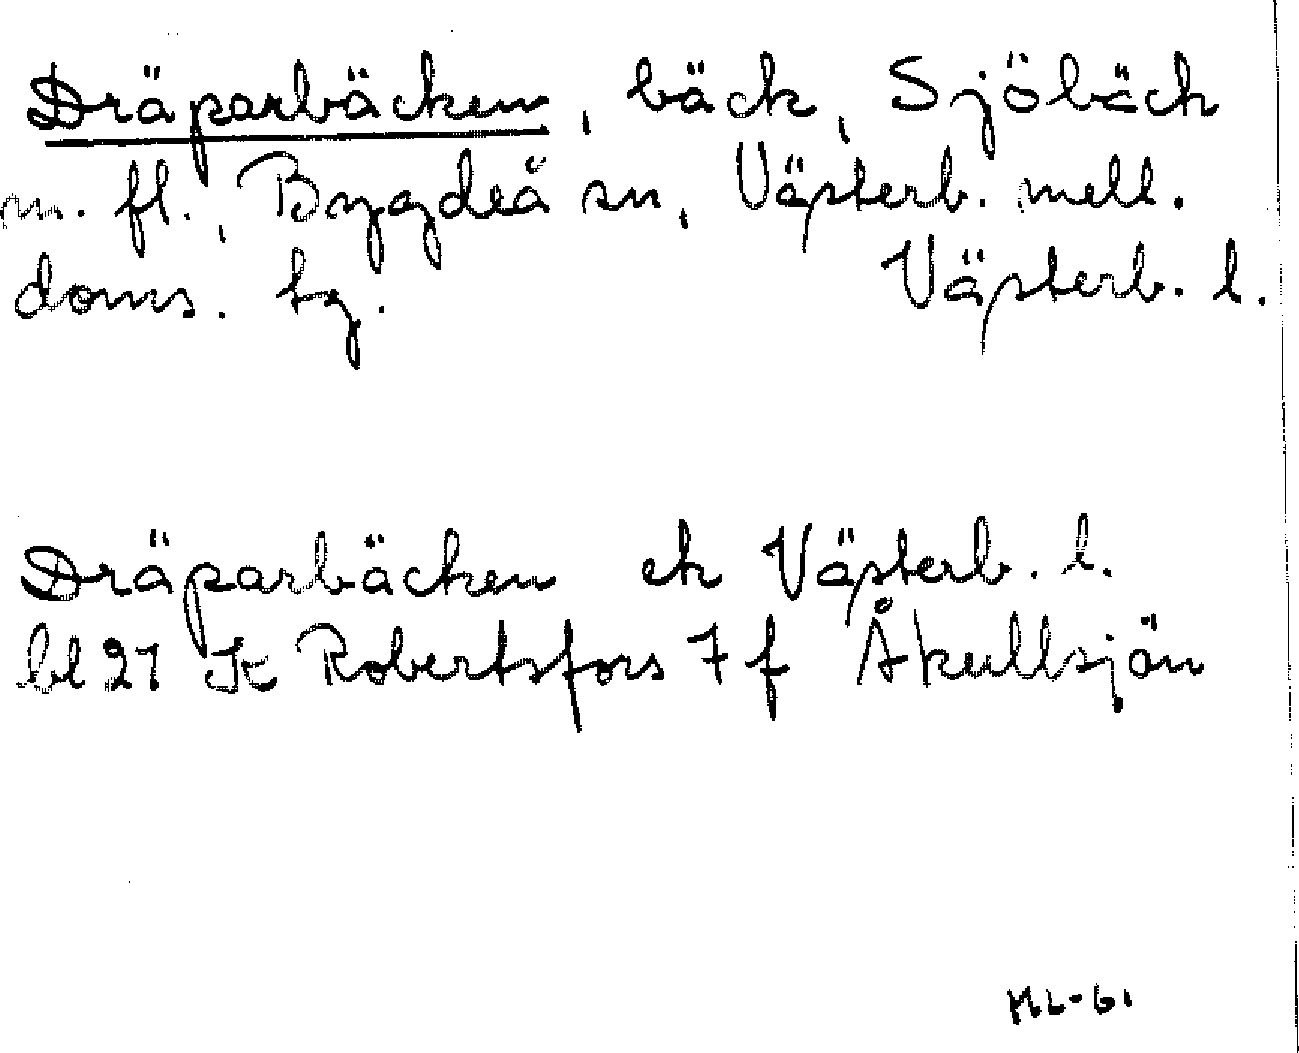 Dräparbäcken, bäck, Sjöbäck
m. fl., Bygdeå sn, Västerb. mell.
doms. tg. Västerb. l.
Dräparbäcken ek Västerb. l.
bl 21 Jt Robertsfors 7 f Åkullsjön
ML-61